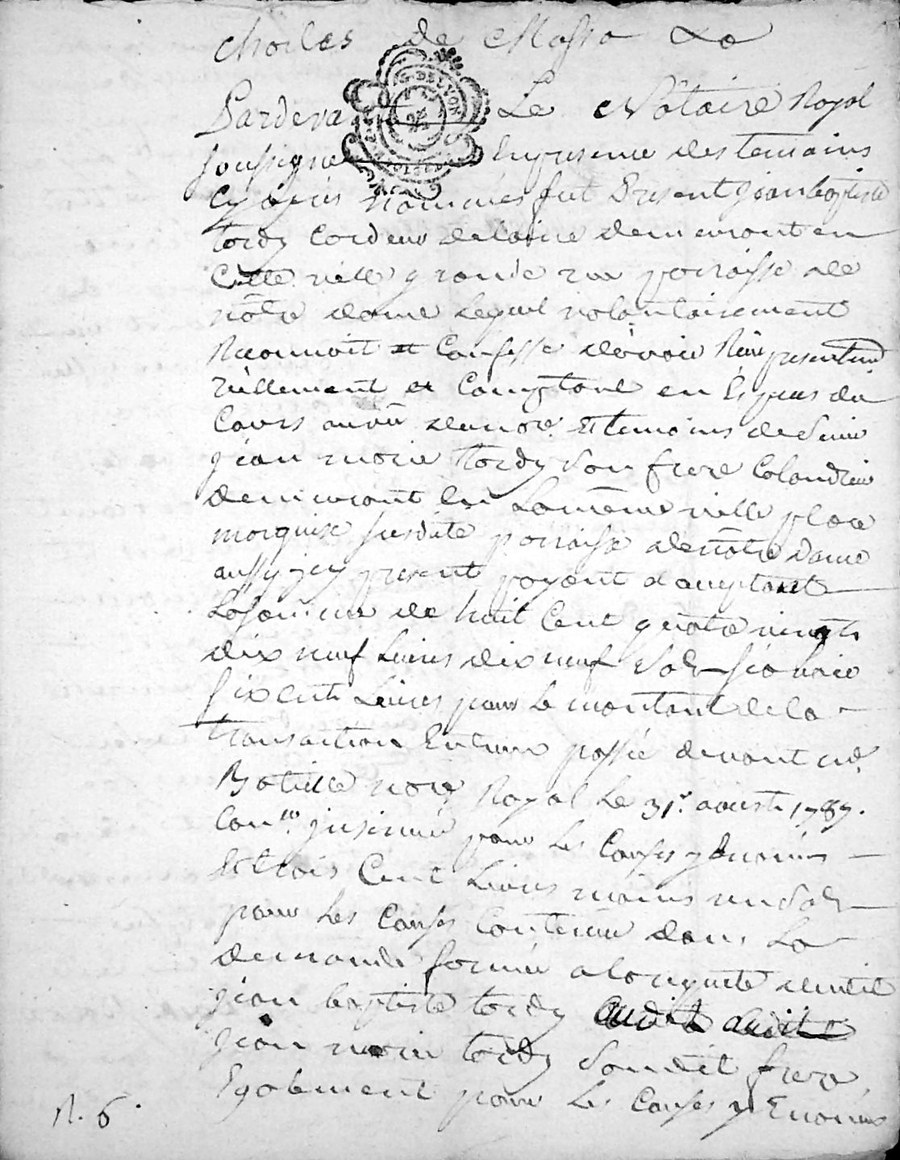 Charles de Massa
G. DE LYON
Pardevant Le Notaire Royal
soussigné En presence des temoins
Cy apres nommes fut Present Jean baptiste
tordy Cordeur de laine demeurant en
Cette ville grande rue paroisse de
nôtre dame Lequel volontairement
Reconnoit et Confesse d'avoir Reçu presentement
réellement et Comptant en Espèces du
Cours au vû de no.re Et temoins de Sieur
Jean marie tordy Son frere Calandreur
demeurant En La même ville place
marquise susdite paroisse de nôtre Dame
aussy icy present payant et acceptant
La somme de huit Cent quatre vingt
dix neuf Livres dix neuf Sols sçavoir
six cent Livres pour Le montant de la
transaction Entreux passée devant
no.re Royal Le 31.e aoust 1787.
Con.lé insinué pour Les Causes y Enoncées
Et trois Cent Livres moins un Sol
pour Les Causes Contenues dans La
demande formée a la requete dudit
Jean baptiste tordy audit
Jean marie tordy Sondit frere
Egalement pour Les Causes y Enoncées
N. 6.